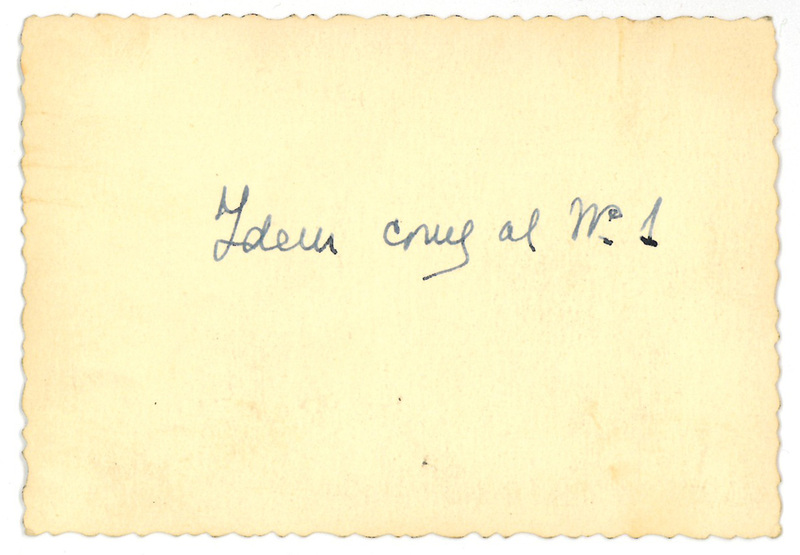 Idem comg al Nº 1